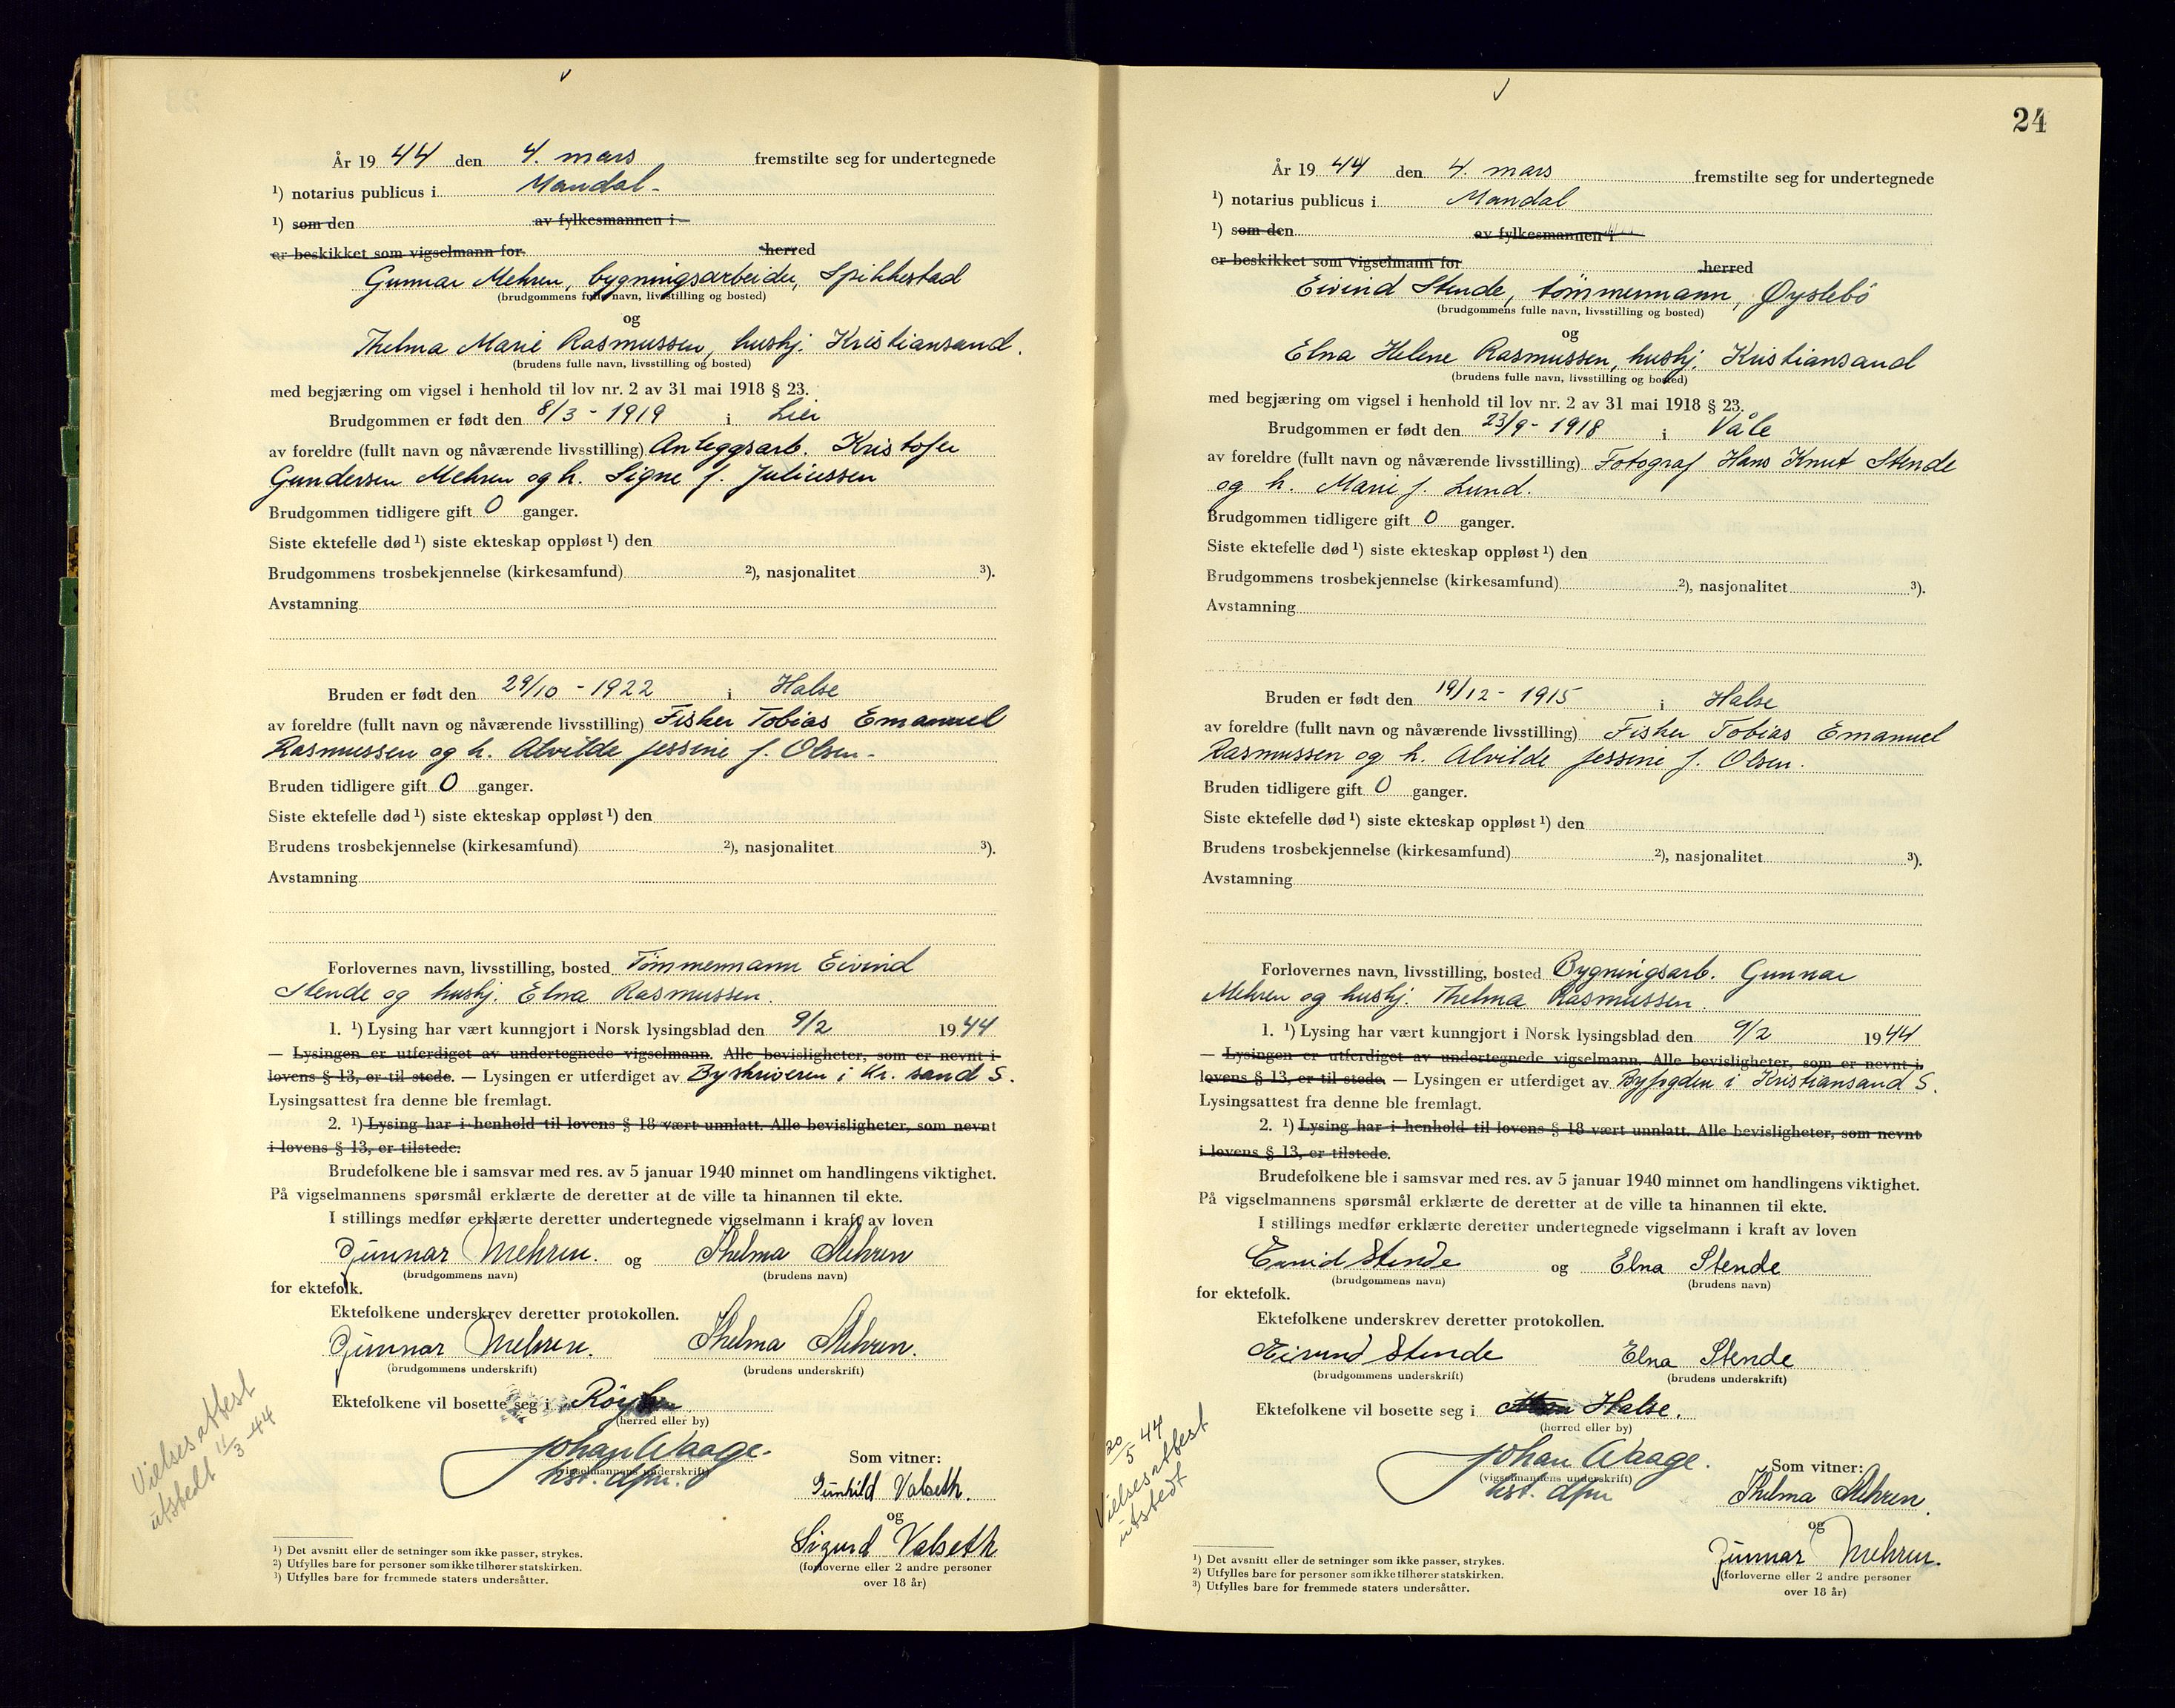 År 1944 den 4. mars fremstilte seg for undertegnede
¹) notarius publicus i Mandal -
¹) som den av fylkesmannen i
er beskikket som vigselmann for herred
Gunnar Mehren, bygningsarbeider, Spikkestad
(brudgommens fulle navn, livsstilling og bosted)
og
Thelma Marie Rasmussen, hushj. Kristiansand.
(brudens fulle navn, livsstilling og bosted)
med begjæring om vigsel i henhold til lov nr. 2 av 31 mai 1918 § 23.
Brudgommen er født den 8/3 - 1919 i Lier
av foreldre (fullt navn og nåværende livsstilling) Anleggsarb. Kristofer
Gundersen Mehren og h. Signe f. Juliussen
Brudgommen tidligere gift 0 ganger.
Siste ektefelle død ¹) siste ekteskap oppløst ¹) den
Brudgommens trosbekjennelse (kirkesamfund) ²), nasjonalitet ³).
Avstamning
Bruden er født den 29/10 - 1922 i Halse
av foreldre (fullt navn og nåværende livsstilling) Fisker Tobias Emanuel
Rasmussen og h. Alvilde Jessine f. Olsen -
Bruden tidligere gift 0 ganger.
Siste ektefelle død ¹) siste ekteskap oppløst ¹) den
Brudens trosbekjennelse (kirkesamfund) ²), nasjonalitet ³).
Avstamning
Forlovernes navn, livsstilling, bosted Tömmermann Eivind
Stende og hushj. Elna Rasmussen.
1. ¹) Lysing har vært kunngjort i Norsk lysingsblad den 9/2 1944
— Lysingen er utferdiget av undertegnede vigselmann. Alle bevisligheter, som er nevnt i
lovens § 13, er til stede. — Lysingen er utferdiget av Byskriveren i Kr. sand S.
Lysingsattest fra denne ble fremlagt.
2. ¹) Lysing har i henhold til lovens § 18 vært unnlatt. Alle bevisligheter, som nevnt
i lovens § 13, er tilstede.
Brudefolkene ble i samsvar med res. av 5 januar 1940 minnet om handlingens viktighet.
På vigselmannens spørsmål erklærte de deretter at de ville ta hinannen til ekte.
I stillings medfør erklærte deretter undertegnede vigselmann i kraft av loven
Gunnar Mehren. og Thelma Mehren
(brudgommens navn) (brudens navn)
for ektefolk.
Ektefolkene underskrev deretter protokollen.
Gunnar Mehren. Thelma Mehren.
(brudgommens underskrift) (brudens underskrift)
Ektefolkene vil bosette seg i Röyken
(herred eller by)
Johan Waage.
(vigselmannens underskrift)
kst. dfm.
Som vitner:
Gunhild Valseth.
og
Sigurd Valseth
(forloverne eller 2 andre personer
over 18 år)
Vielsesattest
utstedt 11/3 -44
¹) Det avsnitt eller de setninger som ikke passer, strykes.
²) Utfylles bare for personer som ikke tilhører statskirken.
³) Utfylles bare for fremmede staters undersåtter.
24
År 1944 den 4. mars fremstilte seg for undertegnede
¹) notarius publicus i Mandal
¹) som den av fylkesmannen i
er beskikket som vigselmann for herred
Eivind Stende, tömmermann, Øyslebö
(brudgommens fulle navn, livsstilling og bosted)
og
Elna Helene Rasmussen, hushj. Kristiansand
(brudens fulle navn, livsstilling og bosted)
med begjæring om vigsel i henhold til lov nr. 2 av 31 mai 1918 § 23.
Brudgommen er født den 23/9 - 1918 i Våle
av foreldre (fullt navn og nåværende livsstilling) Fotograf Hans Knut Stende
og h. Marie f. Lund.
Brudgommen tidligere gift 0 ganger.
Siste ektefelle død ¹) siste ekteskap oppløst ¹) den
Brudgommens trosbekjennelse (kirkesamfund) ²), nasjonalitet ³).
Avstamning
Bruden er født den 19/12 - 1915 i Halse
av foreldre (fullt navn og nåværende livsstilling) Fisker Tobias Emanuel
Rasmussen og h. Alvilde Jessine f. Olsen.
Bruden tidligere gift 0 ganger.
Siste ektefelle død ¹) siste ekteskap oppløst ¹) den
Brudens trosbekjennelse (kirkesamfund) ²), nasjonalitet ³).
Avstamning
Forlovernes navn, livsstilling, bosted Bygningsarb. Gunnar
Mehren og hushj. Thelma Rasmussen.
1. ¹) Lysing har vært kunngjort i Norsk lysingsblad den 9/2 1944
— Lysingen er utferdiget av undertegnede vigselmann. Alle bevisligheter, som er nevnt i
lovens § 13, er til stede. — Lysingen er utferdiget av Byfogden i Kristiansand S.
Lysingsattest fra denne ble fremlagt.
2. ¹) Lysing har i henhold til lovens § 18 vært unnlatt. Alle bevisligheter, som nevnt
i lovens § 13, er tilstede.
Brudefolkene ble i samsvar med res. av 5 januar 1940 minnet om handlingens viktighet.
På vigselmannens spørsmål erklærte de deretter at de ville ta hinannen til ekte.
I stillings medfør erklærte deretter undertegnede vigselmann i kraft av loven
Eivind Stende og Elna Stende
(brudgommens navn) (brudens navn)
for ektefolk.
Ektefolkene underskrev deretter protokollen.
Eivind Stende Elna Stende
(brudgommens underskrift) (brudens underskrift)
Ektefolkene vil bosette seg i Halse.
(herred eller by)
Johan Waage.
(vigselmannens underskrift)
kst. dfm
Som vitner:
Thelma Mehren.
og
Gunnar Mehren.
(forloverne eller 2 andre personer
over 18 år)
20/5 44
Vielsesattest
utstedt
¹) Det avsnitt eller de setninger som ikke passer, strykes.
²) Utfylles bare for personer som ikke tilhører statskirken.
³) Utfylles bare for fremmede staters undersåtter.